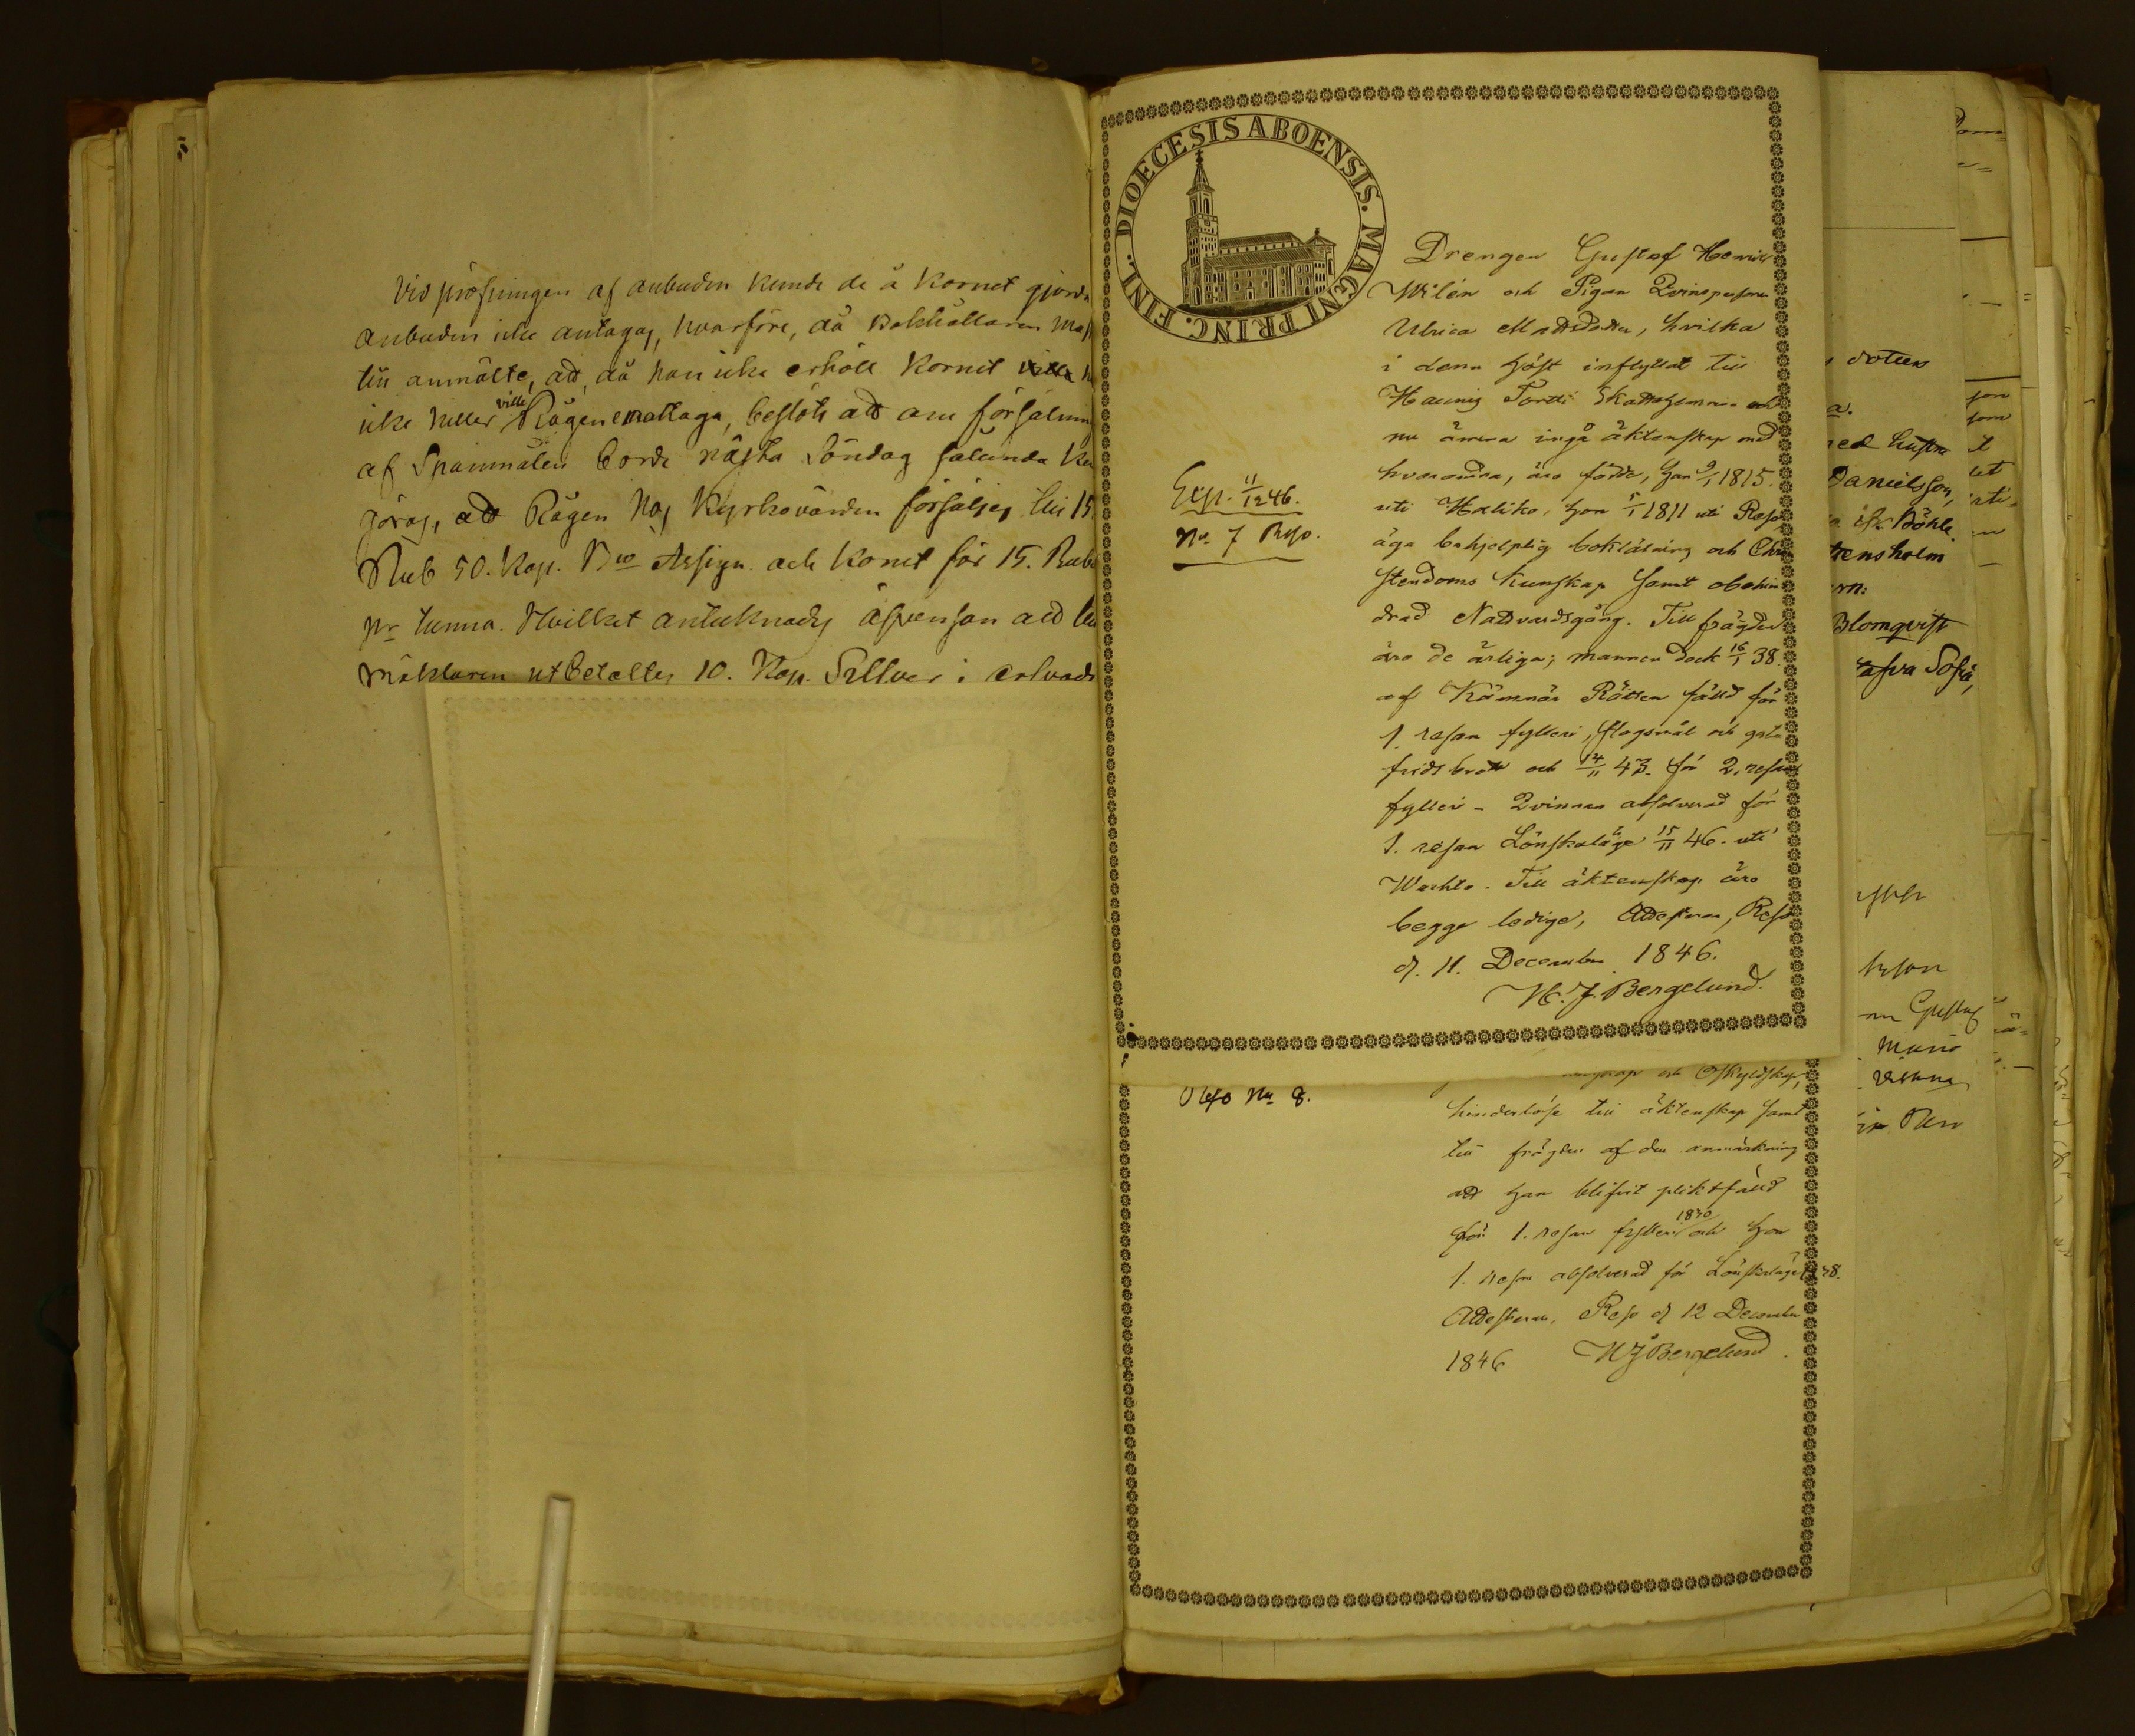 Vid pröfningen af anbuden kunde de å Kornet gjorda
anbuden icke antagas, hvarföre, då Bokhållaren
till anmälte, att, då han icke erhöll Kornet
icke heller ville Rågen emottaga, beslöts att
af Spanmålen borde nästa Söndag sålunda
göras, att Rågen hos Kyrkovärden försäljes till 15
Rub 50. Kop. Bco Assign. och Kornet för 15. Rub
pr tunna. Hvilket antecknades äfvensom att
Mäklaren utbetaltes 10. Kop. Silfver i
DIOECESIS ABOENSIS. MAGNI PRINC. FINL.
Drengen Gustaf Henrik
Wilén och Pigan Qvinspersonen
Ulrica Mattsdotter, hvilka
i denna höst inflyttat till
Haunis Tortti Skattehemman och
nu ämna ingå äktenskap med
hvarandra, äro födde, han 9/1 1815.
uti Haliko, hon 5/1 1811 uti Reso
äga behjelplig bokläsning och Chri
stendoms kunskap samt obehin
drad Nattvardsgång. Till frägden
äro de ärliga; mannen dock 16/1 38.
af Kämnärs Rätten fälld för
1. resan fylleri, slagsmål och gatu
fridsbrott och 14/11 43. för 2. resan
fylleri - Qvinnan absolverad för
1. resan Lönskaläge 15/11 46. uti
Wachto. Till äktenskap äro
begge ledige, Attesteras, Reso
d. 11. December 1846.
H. J. Bergelund.
Exp. 11/12 46.
No. 7 Reso.
Reso No 8.
och Oskyldskap,
hinderlöse till äktenskap samt
till frägden af den anmärkning
att han blifvit pliktfälld
för 1. resan fylleri 1830 och hon
1. resan absolverad för Lönskaläge 1838.
Attesteras, Reso d 12 December
1846 HJBergelund.
dotter
a.
ed hustru
Danielsson,
Böhle.
tensholm
Blomqvist
Sofia,
Gustaf
Maria